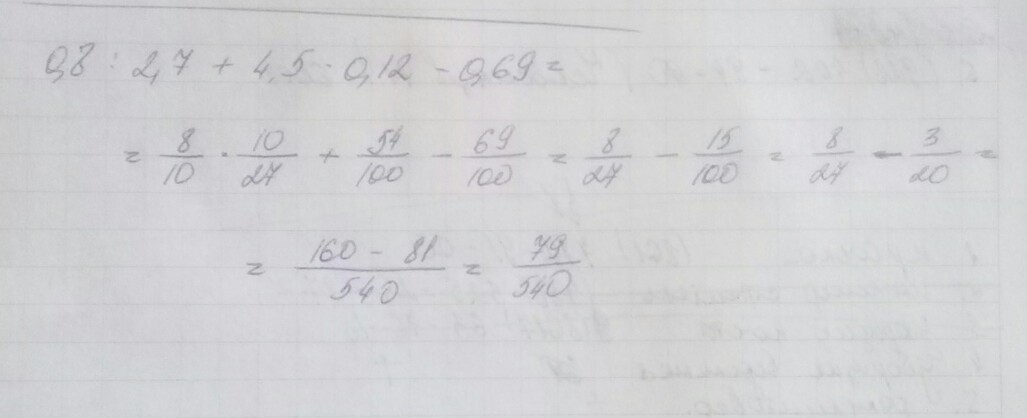 0,8 : 2,7 + 4,5 · 0,12 - 0,69 =
= 8/10 · 10/27 + 54/100 - 69/100 = 8/27 - 15/100 = 8/27 - 3/20 =
= (160 - 81)/540 = 79/540